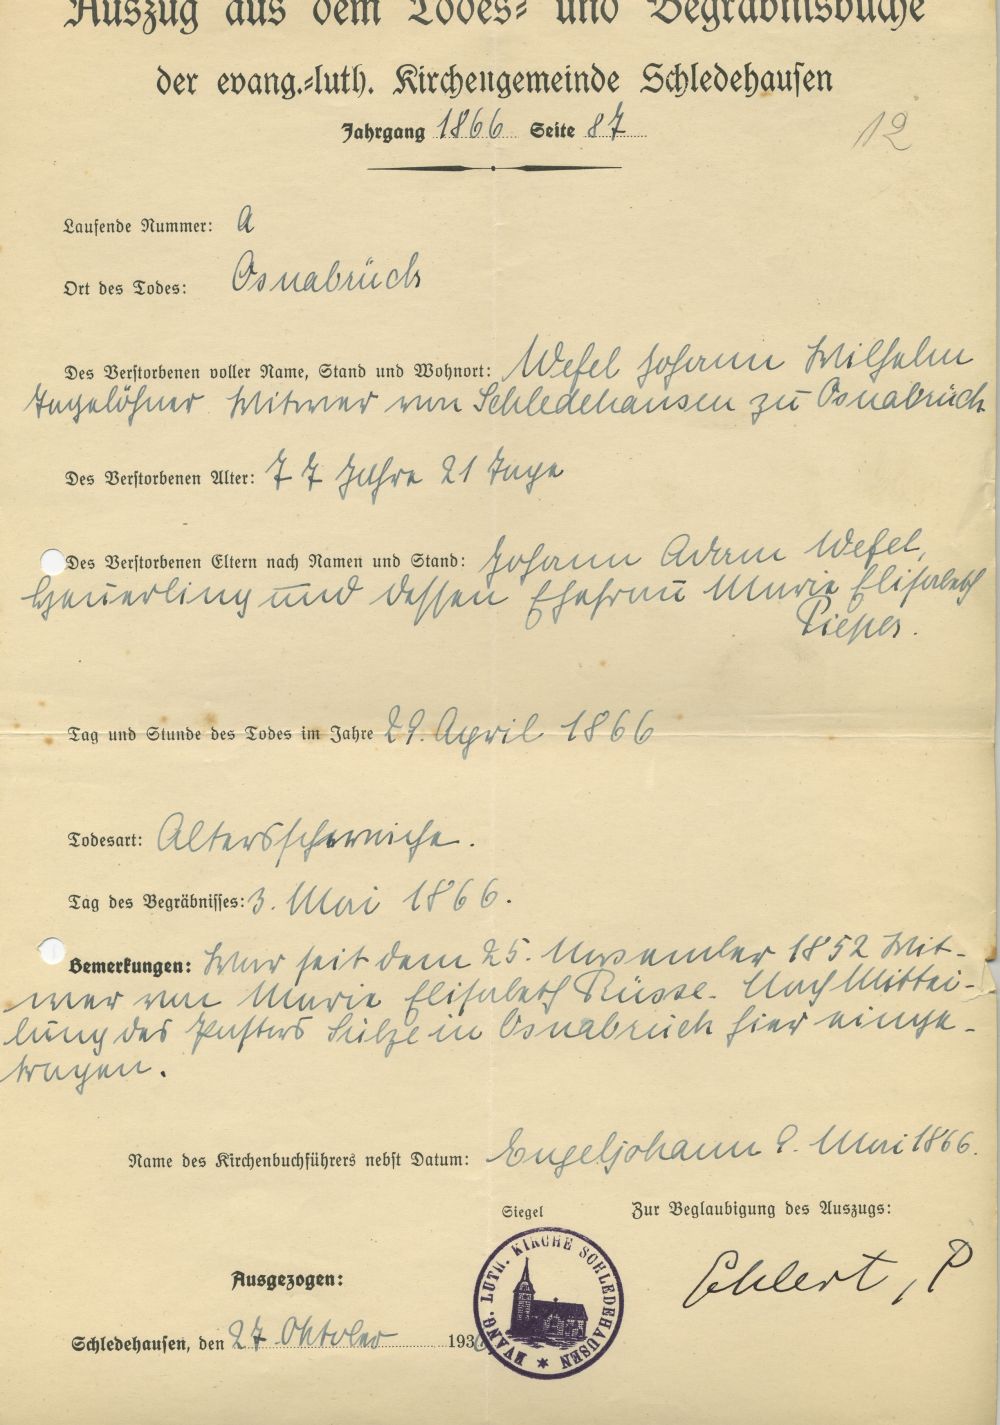 Auszug aus dem Todes- und Begräbnisbuche
der evang.-luth. Kirchengemeinde Schledehausen
Jahrgang 1866 Seite 87
12
Laufende Nummer: A
Ort des Todes: Osnabrück
Des Verstorbenen voller Name, Stand und Wohnort: Wefel Johann Wilhelm
Tagelöhner Witwer von Schledehausen zu Osnabrück
Des Verstorbenen Alter: 77 Jahre 21 Tage
Des Verstorbenen Eltern nach Namen und Stand: Johann Adam Wefel,
Heuerling und dessen Ehefrau Marie Elisabeth
Pieper.
Tag und Stunde des Todes im Jahre 29. April 1866
Todesart: Altersschwäche.
Tag des Begräbnisses: 3. Mai 1866.
Bemerkungen: War seit dem 25. November 1852 Wit-
wer von Marie Elisabeth Rüsse. Nach Mittei-
lung des Pastors Sülze in Osnabrück hier einge-
tragen.
Name des Kirchenbuchführers nebst Datum: Engeljohann 9. Mai 1866.
Siegel Zur Beglaubigung des Auszugs:
EVANG. LUTH. KIRCHE SCHLEDEHAUSEN
Ehlert, P
Ausgezogen:
Schledehausen, den 27 Oktober 193